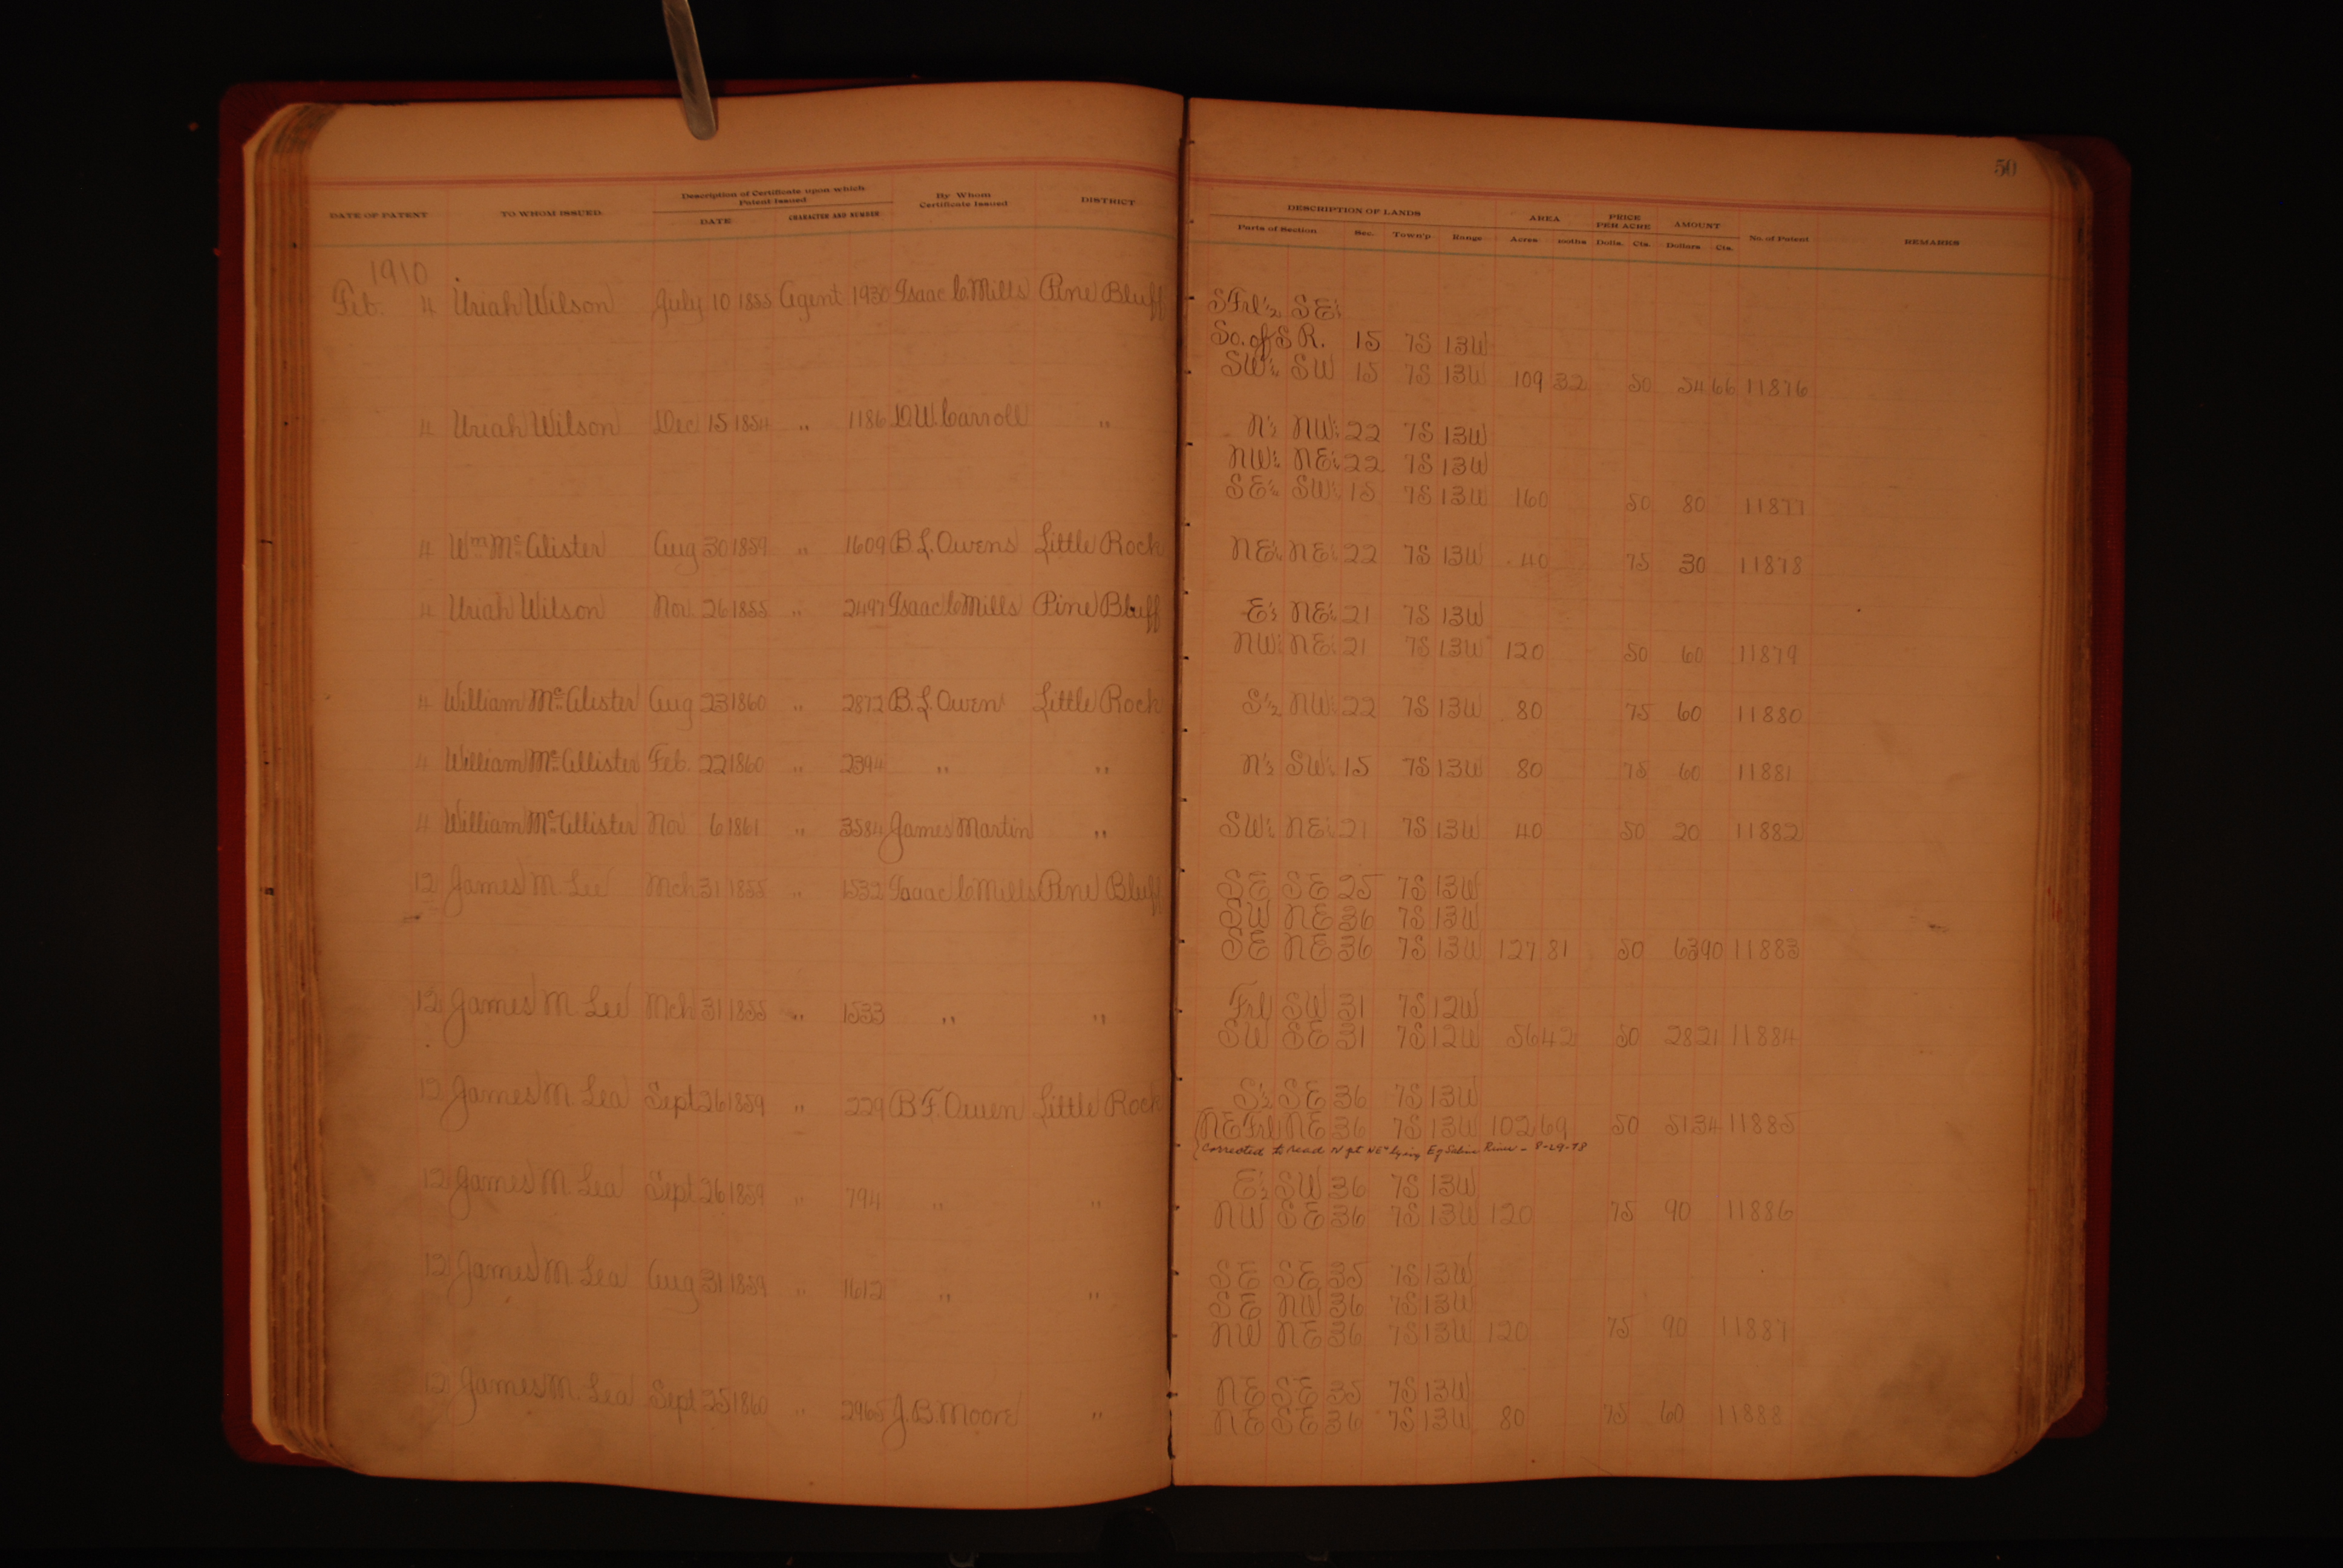 50
DATE OF PATENT TO WHOM ISSUED Description of Certificate upon which Patent Issued DATE CHARACTER AND NUMBER By Whom Certificate Issued DISTRICT DESCRIPTION OF LANDS Parts of Section Sec. Town'p Range AREA Acres 100ths PRICE PER ACRE Dolls. Cts. AMOUNT Dollars Cts. No. of Patent REMARKS
1910
Feb. 4 Uriah Wilson July 10 1855 Agent 1930 Isaac C. Mills Pine Bluff S Frl ½ SE¼
So. of S R. 15 7S 13W
SW¼ SW 15 7S 13W 109 32 50 54 66 11876
4 Uriah Wilson Dec 15 1854 " 1186 D.W. Carroll " N½ NW¼ 22 7S 13W
NW¼ NE¼ 22 7S 13W
SE¼ SW¼ 15 7S 13W 160 50 80 11877
4 Wm McAlister Aug 30 1859 " 1609 B.F. Owens Little Rock NE¼ NE¼ 22 7S 13W 40 75 30 11878
4 Uriah Wilson Nov. 26 1855 " 2497 Isaac C Mills Pine Bluff E½ NE¼ 21 7S 13W
NW¼ NE¼ 21 7S 13W 120 50 60 11879
4 William McAlister Aug 23 1860 " 2872 B.F. Owens Little Rock S½ NW¼ 22 7S 13W 80 75 60 11880
4 William McAllister Feb. 22 1860 " 2394 " " N½ SW¼ 15 7S 13W 80 75 60 11881
4 William McAllister Nov 6 1861 " 3584 James Martin " SW¼ NE¼ 21 7S 13W 40 50 20 11882
12 James M. Lee Mch 31 1855 " 1532 Isaac C Mills Pine Bluff SE SE 25 7S 13W
SW NE 36 7S 13W
SE NE 36 7S 13W 127 81 50 63 90 11883
12 James M. Lee Mch 31 1855 " 1533 " " Frl SW 31 7S 12W
SW SE 31 7S 12W 56 42 50 28 21 11884
12 James M. Lea Sept 26 1859 " 229 B F. Owen Little Rock S½ SE 36 7S 13W
NE Frl NE 36 7S 13W 102 69 50 51 34 11885
Corrected to read N pt NE¼ lying E of Saline River - 8-29-78
12 James M. Lea Sept 26 1859 " 794 " " E½ SW 36 7S 13W
NW SE 36 7S 13W 120 75 90 11886
12 James M. Lea Aug 31 1859 " 1612 " " SE SE 35 7S 13W
SE NW 36 7S 13W
NW NE 36 7S 13W 120 75 90 11887
12 James M. Lea Sept 25 1860 " 2965 J.B. Moore " NE SE 35 7S 13W
NE SE 36 7S 13W 80 75 60 11888